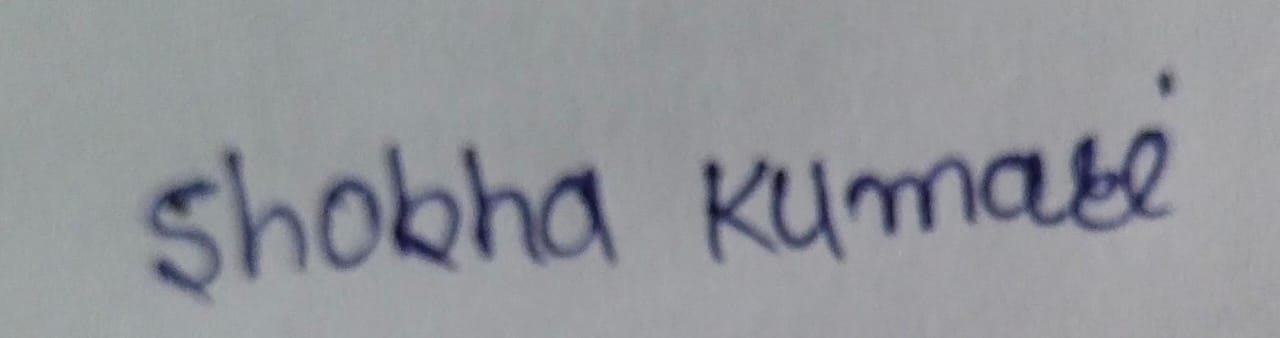 Shobha Kumari